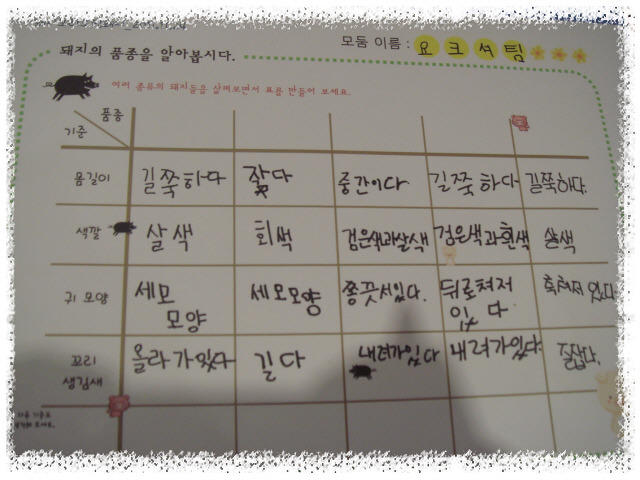 돼지의 품종을 알아봅시다.
모둠 이름 : 요크셔팀
여러 종류의 돼지들을 살펴보면서 표를 만들어 보세요.
품종
기준
몸길이 길쭉하다 짧다 중간이다 길쭉하다 길쭉하다.
색깔 살색 회색 검은색과살색 검은색과흰색 살색
귀 모양 세모 모양 세모모양 쫑끗서있다. 뒤로쳐저 있다 축쳐저 있다
꼬리 생김새 올라가있다 길다 내려가있다 내려가있다